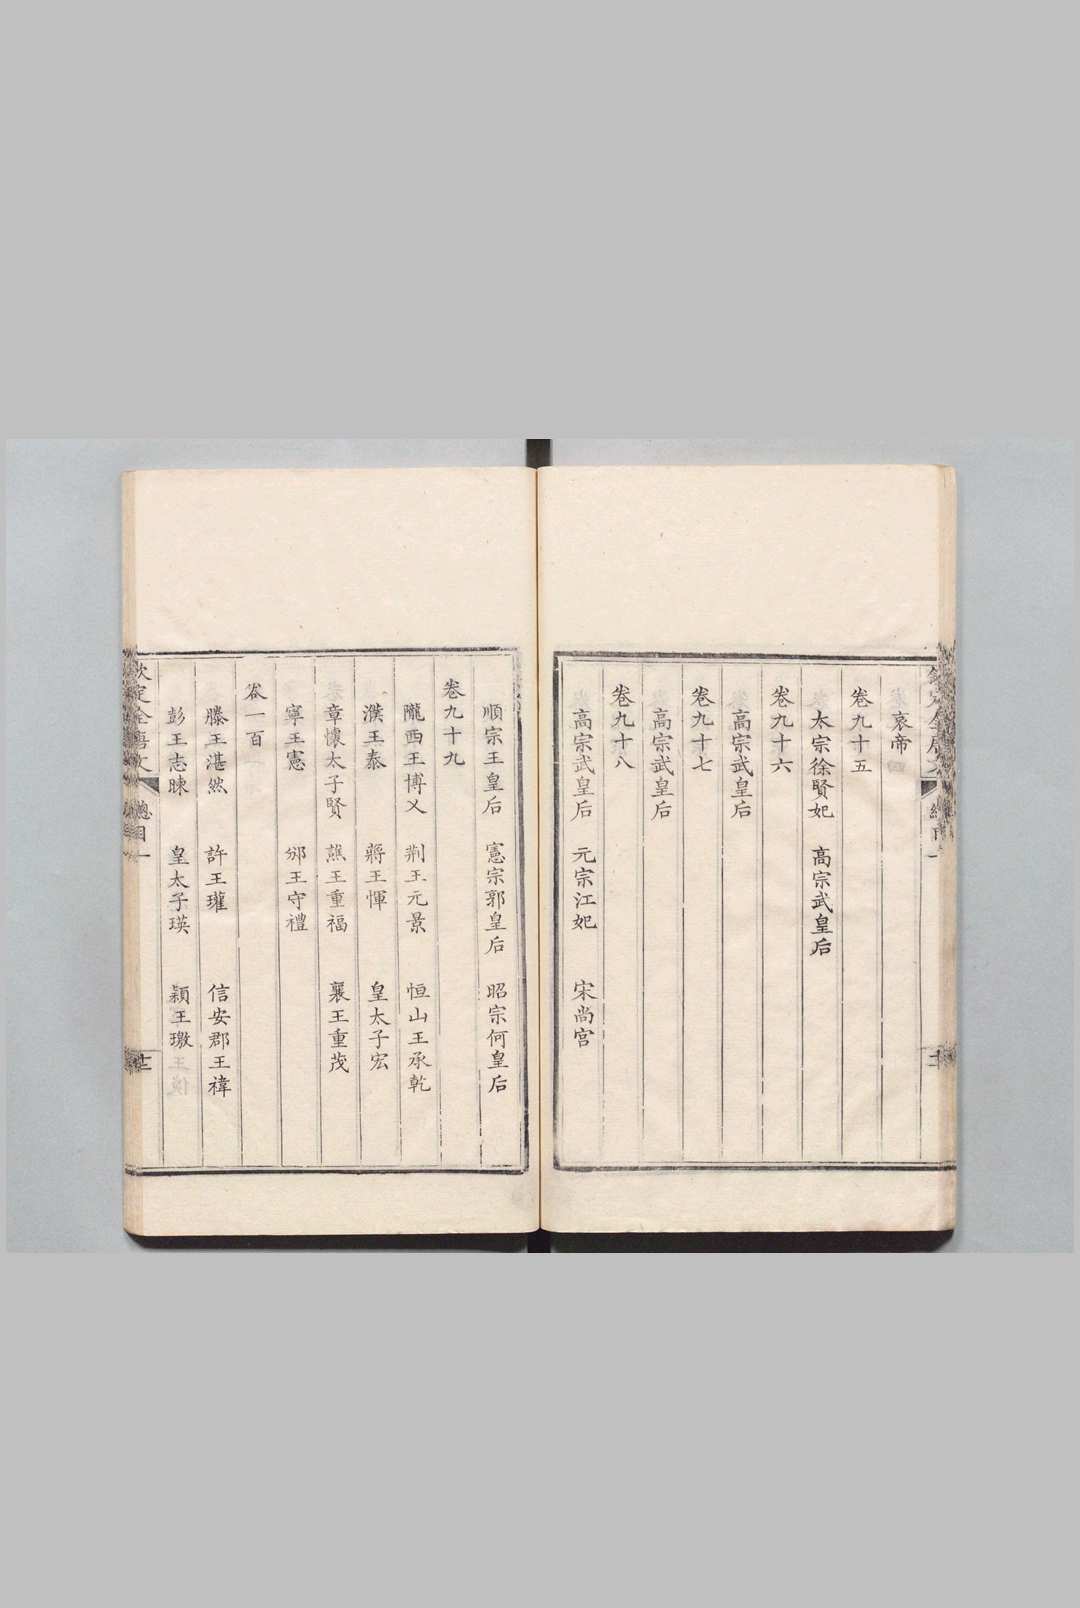 哀帝
卷九十五
太宗徐賢妃 高宗武皇后
卷九十六
高宗武皇后
卷九十七
高宗武皇后
卷九十八
高宗武皇后 元宗江妃 宋尚宫
順宗王皇后 憲宗郭皇后 昭宗何皇后
卷九十九
隴西王博乂 荆王元景 恒山王承乾
濮王泰 蔣王惲 皇太子宏
章懷太子賢 譙王重福 襄王重茂
寧王憲 邠王守禮
卷一百
滕王湛然 許王瓘 信安郡王禕
彭王志暕 皇太子瑛 潁王璬
欽定全唐文 總目一 十二